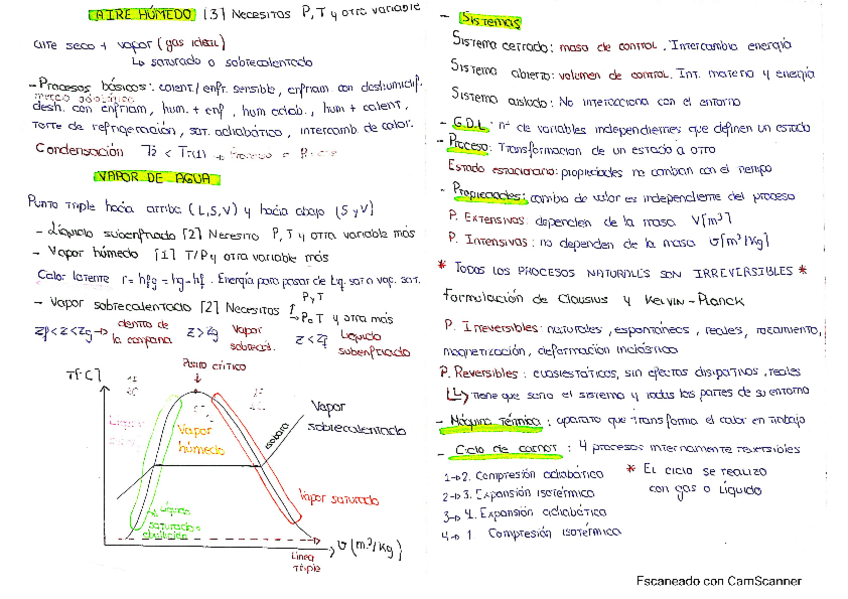 AIRE HÚMEDO [3] Necesitas P, T y otra variable
aire seco + vapor (gas ideal)
↳ saturado o sobrecalentado
- Procesos básicos: calent/enfr. sensible, enfriam. con deshumidif.
desh. con enfriam, hum. + enf, hum adiab., hum + calent,
torre de refrigeración, sat. adiabático, intercamb. de calor.
Condensación
VAPOR DE AGUA
Punto triple hacia arriba (L,S,V) y hacia abajo (S y V)
- Líquido subenfriado [2] Necesito P, T y otra variable más
- Vapor húmedo [1] T/P y otra variable más
Calor latente r = hfg = hg - hf. Energía para pasar de líq. sat a vap. sat.
P y T
- Vapor sobrecalentado [2] Necesitas
P o T y otra más
zf < z < zg → dentro de la campana
z > zg Vapor sobrecal.
z < zf Líquido subenfriado
Punto crítico
T[ºC]
Vapor sobrecalentado
Vapor húmedo
isobara
Vapor saturado
Líquido saturado o ebullición
v [m³/kg]
Línea triple
- Sistemas
Sistema cerrado: masa de control. Intercambia energía
Sistema abierto: volumen de control. Int. materia y energía
Sistema aislado: No interacciona con el entorno
- G.D.L: nº de variables independientes que definen un estado
- Proceso: Transformación de un estado a otro
Estado estacionario: propiedades no cambian con el tiempo
- Propiedades: cambio de valor es independiente del proceso
P. Extensivas: dependen de la masa V[m³]
P. Intensivas: no dependen de la masa v[m³/kg]
* TODOS LOS PROCESOS NATURALES SON IRREVERSIBLES *
Formulación de Clausius y Kelvin-Planck
P. Irreversibles: naturales, espontáneos, reales, rozamiento,
magnetización, deformación inelástica
P. Reversibles: cuasiestáticos, sin efectos disipativos, reales
↳ tiene que serlo el sistema y todas las partes de su entorno
- Máquina Térmica: aparato que transforma el calor en trabajo
- Ciclo de carnot: 4 procesos internamente reversibles
1→2. Compresión adiabática
2→3. Expansión isotérmica
3→4. Expansión adiabática
4→1 Compresión isotérmica
* El ciclo se realiza
con gas o líquido
Escaneado con CamScanner